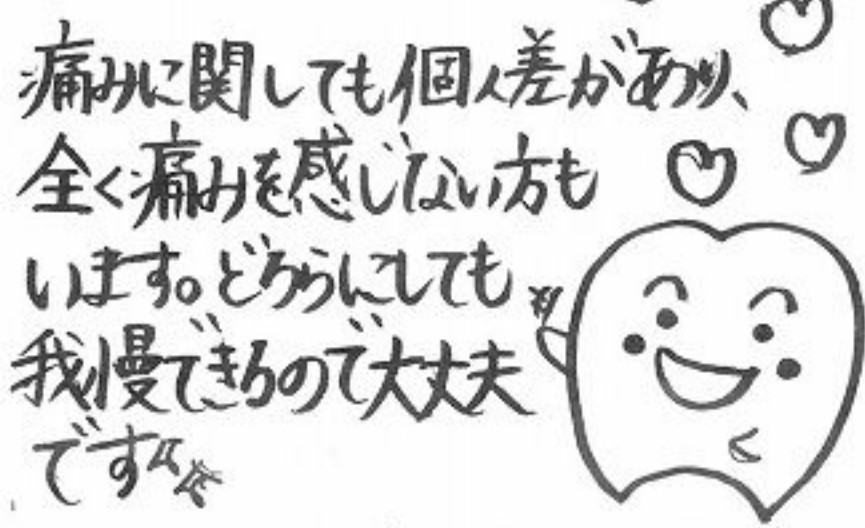 痛みに関しても個人差があり、
全く痛みを感じない方も
います。どちらにしても
我慢できるので大丈夫
です